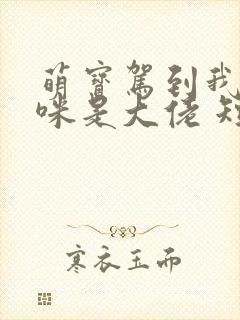 萌寶駕到我
咪是大佬短
寒衣玉而